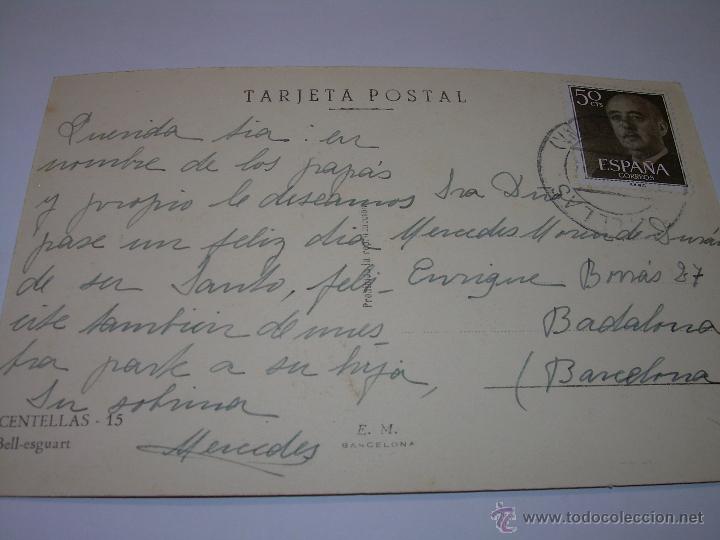 TARJETA POSTAL
Querida tia: en
nombre de los papás
y propio le deseamos
pase un feliz dia
de su Santo, feli-
cite tambien de nues
tra parte a su hija,
Su sobrina
Mercedes
CENTELLAS - 15
Bell-esguart
Prohibida la reproducción
E. M.
BARCELONA
50 CTS
ESPAÑA
CORREOS
Sra Dña
Mercedes Moren de Durás
Enrique Borrás 27
Badalona
(Barcelona
www.todocoleccion.net